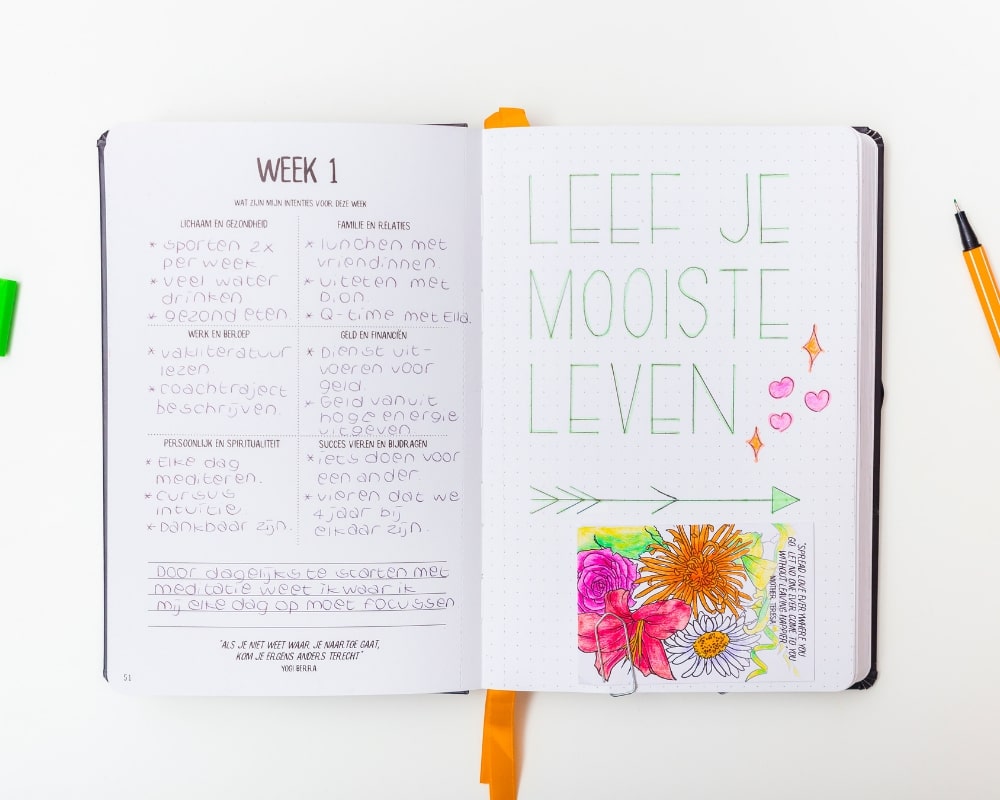 WEEK 1
WAT ZIJN MIJN INTENTIES VOOR DEZE WEEK
LICHAAM EN GEZONDHEID
* sporten 2x
per week
* veel water
drinken
* gezond eten.
FAMILIE EN RELATIES
* lunchen met
vriendinnen
* uiteten met
Dion.
* Q-time met Ella.
WERK EN BEROEP
* vakliteratuur
lezen
* coachtraject
beschrijven.
GELD EN FINANCIËN
* Dienst uit-
voeren voor
geld.
* Geld vanuit
hoge energie
uitgeven
PERSOONLIJK EN SPIRITUALITEIT
* Elke dag
mediteren.
* cursus
intuïtie.
* Dankbaar zijn.
SUCCES VIEREN EN BIJDRAGEN
* iets doen voor
een ander.
* vieren dat we
4 jaar bij
elkaar zijn.
Door dagelijks te starten met
meditatie weet ik waar ik
mij elke dag op moet focussen
"ALS JE NIET WEET WAAR JE NAAR TOE GAAT,
KOM JE ERGENS ANDERS TERECHT"
YOGI BERRA
51
LEEF JE
MOOISTE
LEVEN
"SPREAD LOVE EVERYWHERE YOU
GO. LET NO ONE EVER COME TO YOU
WITHOUT LEAVING HAPPIER."
MOTHER TERESA